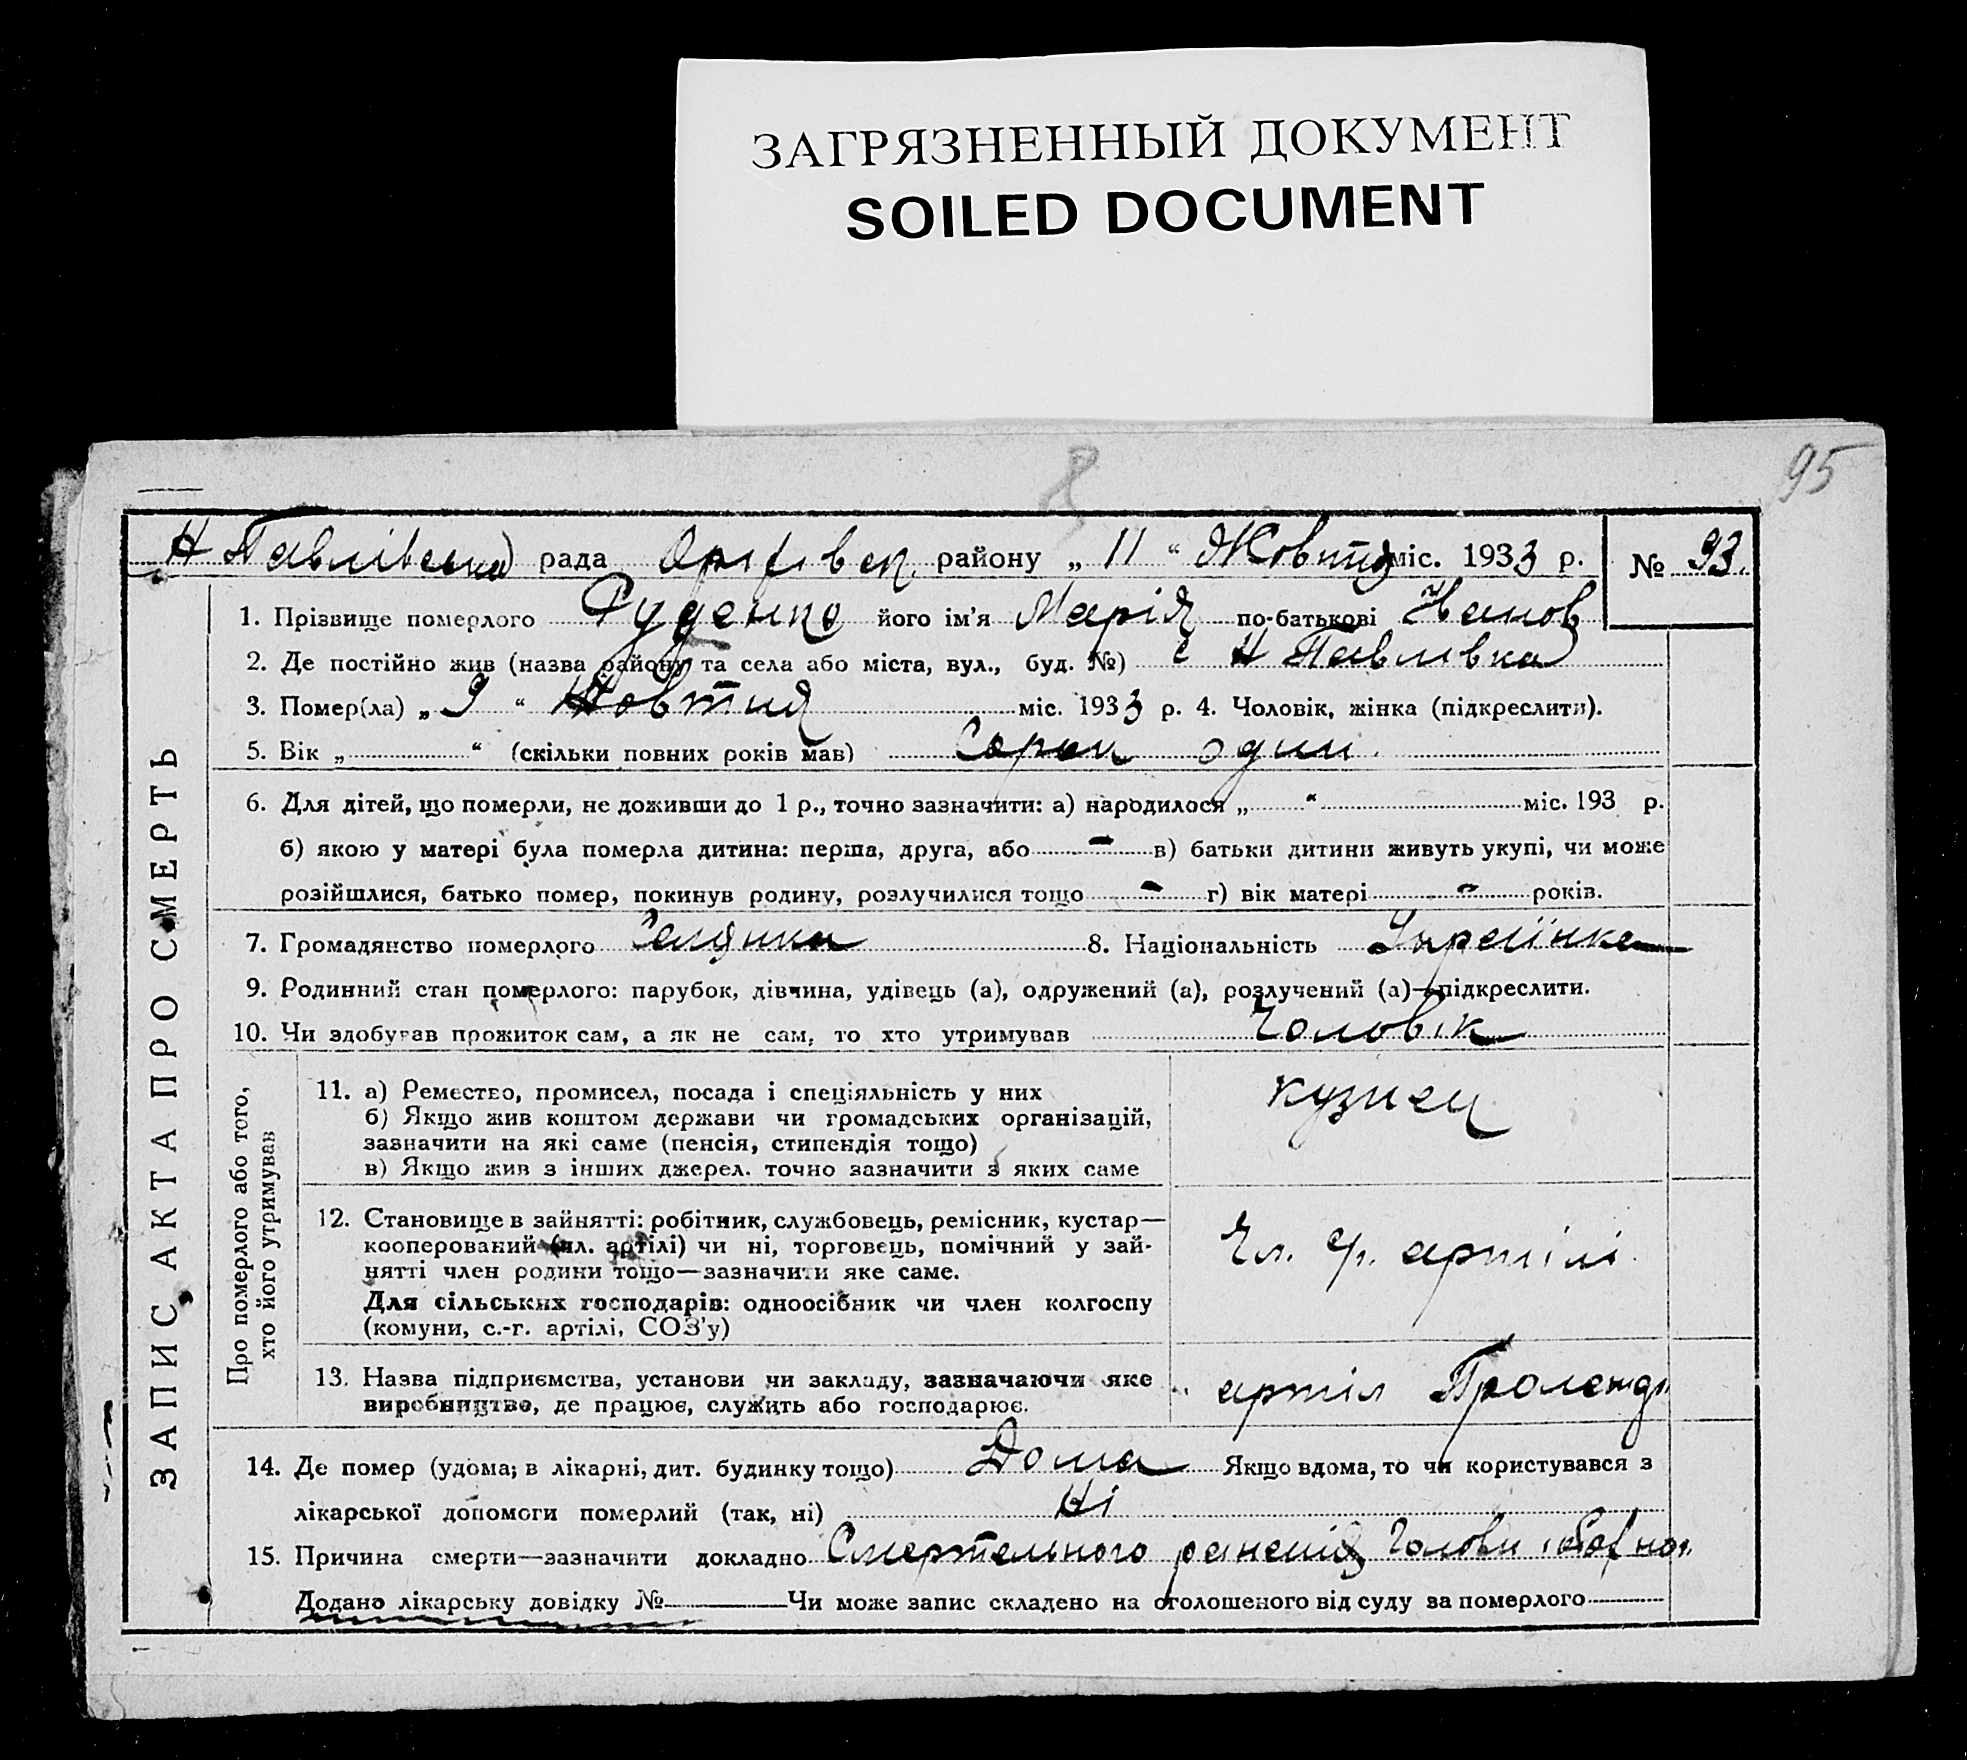 ЗАГРЯЗНЕННЫЙ ДОКУМЕНТ
SOILED DOCUMENT
95
Н Павлівська рада Оріхівск району „ 11 “ Жовтня міс. 1933 р. № 93.
ЗАПИС АКТА ПРО СМЕРТЬ
1. Прізвище померлого Руденко його ім'я Марія по-батькові Іванов
2. Де постійно жив (назва району та села або міста, вул., буд. №) с Н Павлівка
3. Помер(ла) „ 9 “ Жовтня міс. 1933 р. 4. Чоловік, жінка (підкреслити).
5. Вік „ “ (скільки повних років мав) Сорок один
6. Для дітей, що померли, не доживши до 1 р., точно зазначити: а) народилося „ “ міс. 193 р.
б) якою у матері була померла дитина: перша, друга, або - в) батьки дитини живуть укупі, чи може
розійшлися, батько помер, покинув родину, розлучилися тощо - г) вік матері - років.
7. Громадянство померлого Селянка 8. Національність Украінка
9. Родинний стан померлого: парубок, дівчина, удівець (а), одружений (а), розлучений (а)—підкреслити.
10. Чи здобував прожиток сам, а як не сам, то хто утримував Чоловік
Про померлого або того,
хто його утримував
11. а) Ремество, промисел, посада і спеціяльність у них
б) Якщо жив коштом держави чи громадських організацій,
зазначити на які саме (пенсія, стипендія тощо)
в) Якщо жив з інших джерел. точно зазначити з яких саме
кузнец
12. Становище в зайнятті: робітник, службовець, ремісник, кустар—
кооперований (чл. артілі) чи ні, торговець, помічний у зай-
нятті член родини тощо—зазначити яке саме.
Для сільських господарів: одноосібник чи член колгоспу
(комуни, с.-г. артілі, СОЗ'у)
Чл. артілі
13. Назва підприємства, установи чи закладу, зазначаючи яке
виробництво, де працює, служить або господарює.
артіл
14. Де помер (удома, в лікарні, дит. будинку тощо) Дома Якщо вдома, то чи користувався з
лікарської допомоги померлий (так, ні) Ні
15. Причина смерти—зазначити докладно Смертельного раненія Голови
Додано лікарську довідку № Чи може запис складено на оголошеного від суду за померлого